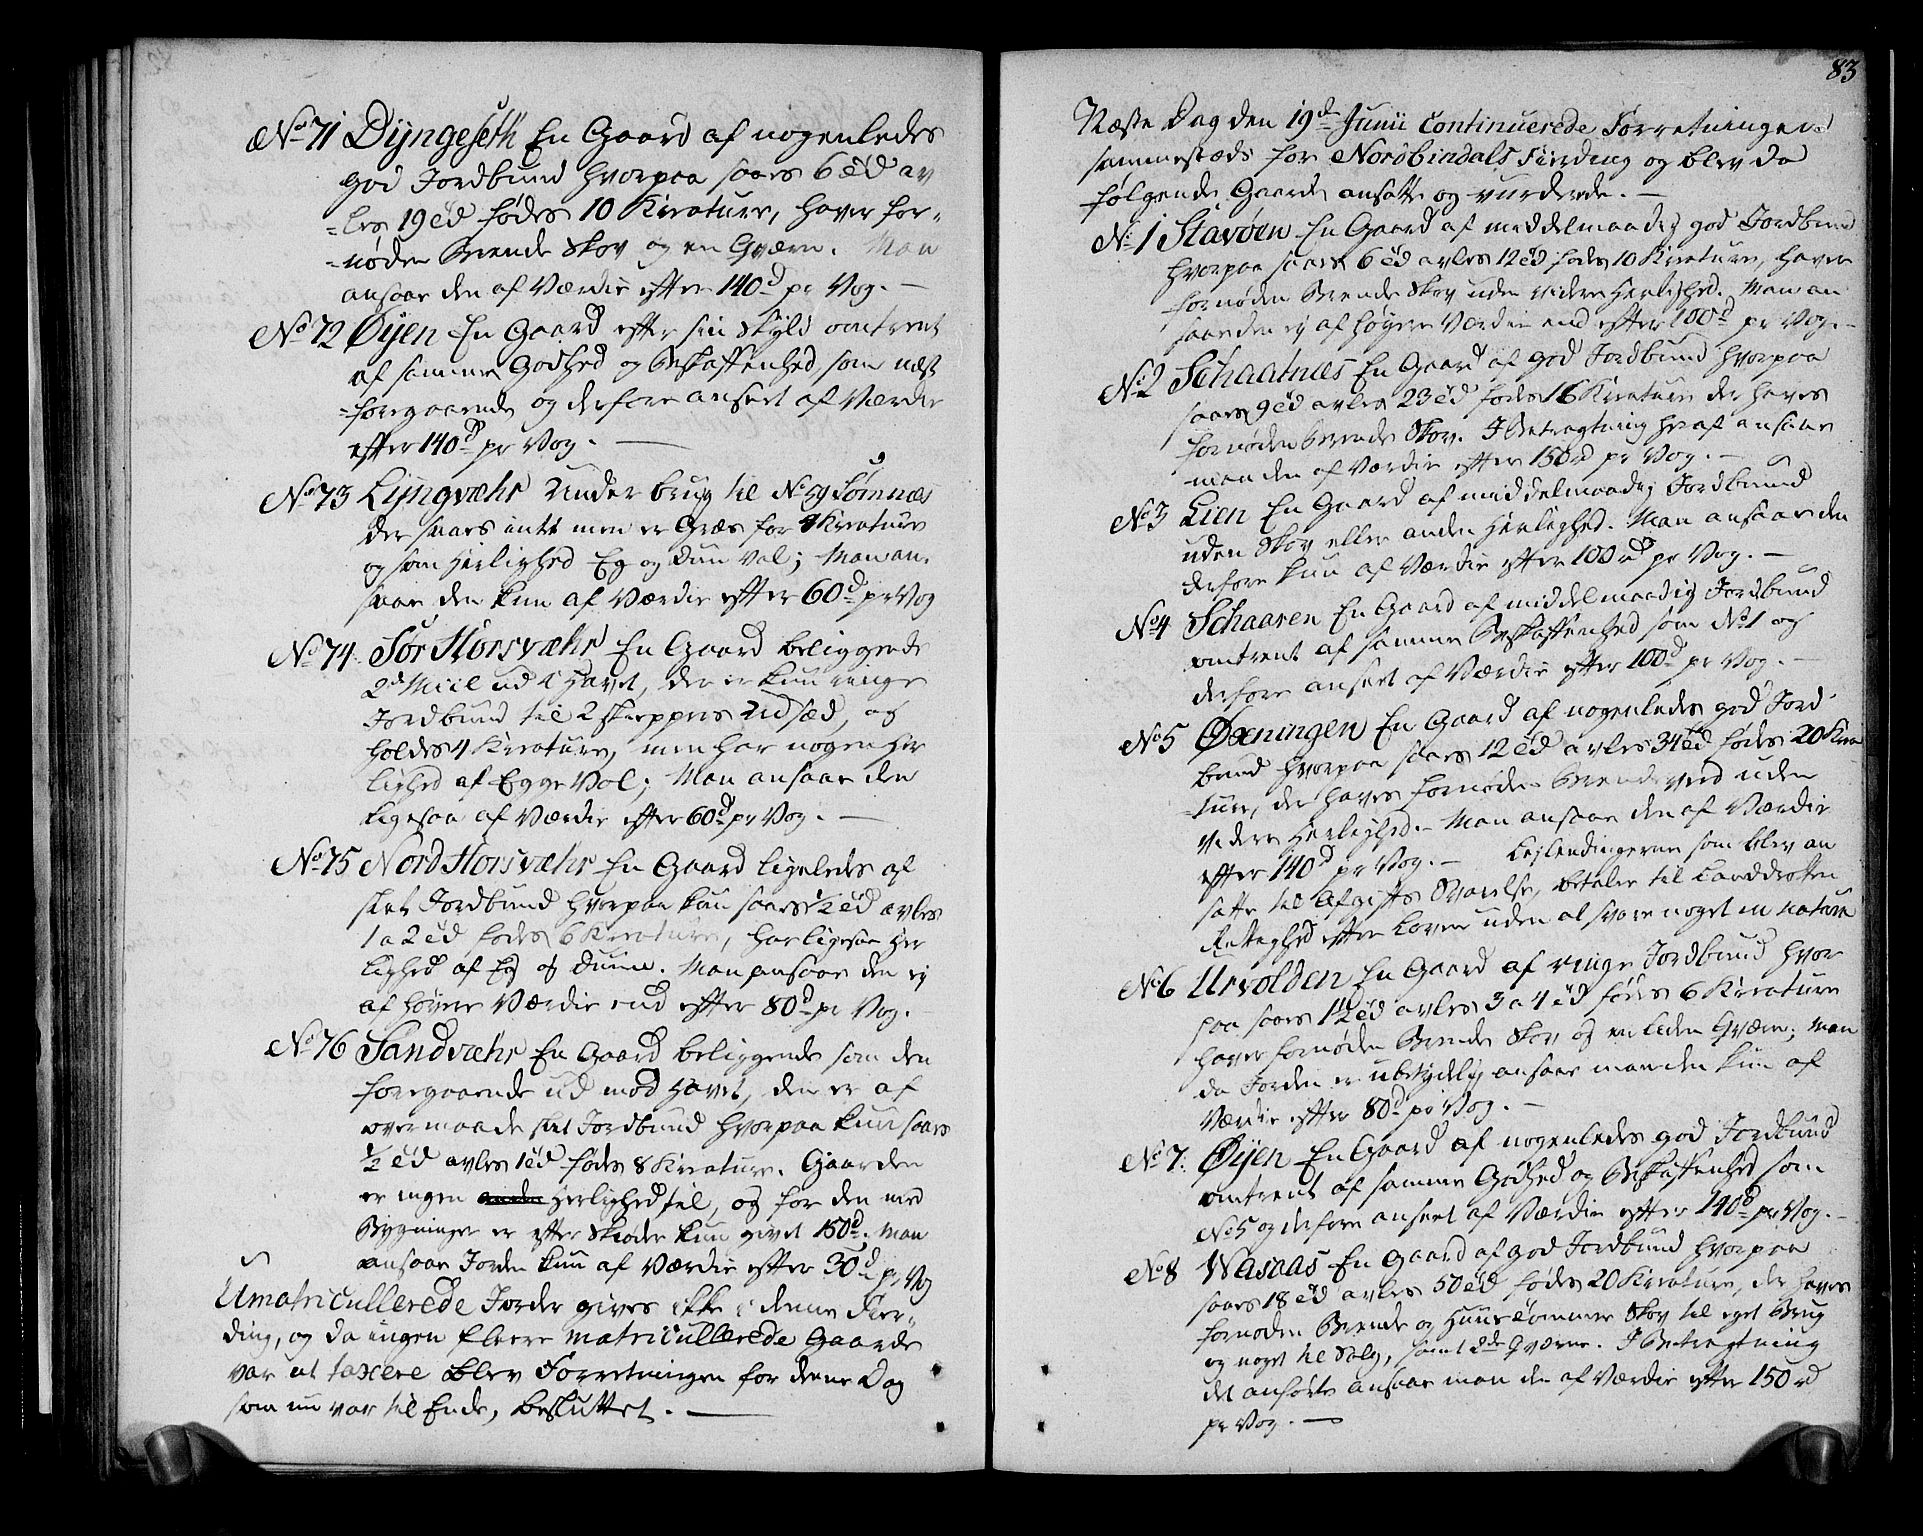 No 71 Dÿngeseth En Gaard af nogenledes
god Jordbund hvorpaa saaes 6 td av
les 19 td fødes 10 Kreature, haver for-
nøden Brende Skov og en Qværn. Man
ansaae den af Værdie efter 140d pr Vog. —
No 72 Øÿen En Gaard efter sin Skyld omtrent
af samme Godhed og Beskaffenhed som næst
foregaaende og derfore anseet af Værdie
efter 140d pr Vog. —
No 73 Lÿngvæhr Under brug til No 59 Sømnæs
der saaes intet men er Græs for 4 Kreature
og som Herlighed Eg og Duun Val; Man an-
saae den kun af Værdie efter 60d pr Vog
No 74. Sør Horsvæhr En Gaard beliggende
2d Miil ud i Havet, der er kun ringe
Jordbund til 2 skiepper Udsæd, og
holdes 4 Kreature, men har nogen Her
lighed af Egge Val; Man ansaae den
ligesaa af Værdie efter 60d pr Vog. —
No 75 Nord Horsvæhr En Gaard ligeledes af
slet Jordbund hvorpaa kun saaes 1/2 td avles
1 a 2 td fødes 6 Kreature, har ligesaa Her
lighed af Eg og Duun. Man ansaae den ej
af høyere Værdie end efter 80d pr Vog. —
No 76 Sandvæhr En Gaard beliggende som den
foregaaende ud mod Havet, den er af
overmaade slet Jordbund hvorpaa kun saaes
1/2 td avles 1 td fødes 8 Kreature. Gaarden
er ingen anden Herlighed til, og for den med
Bygninger er efter Skiøde kun givet 150d; Man
ansaae Jorden kun af Værdie efter 30d pr Vog
Umatricullerede Jorder gives ikke i denne Fier-
ding, og da ingen fleere matricullerede Gaarde
var at taxere blev Forretningen for denne Dag
som nu var til Ende, besluttet. —
83
Næste Dag den 19de Junii continuerede Forretningen
sammestæds for Nordbindals Fierding og blev da
følgende Gaarde ansatte og vurderede. —
No 1 Stavøen En Gaard af middelmaadig god Jordbund
hvorpaa saaes 6 td avles 12 td fødes 10 Kreature, haver
fornøden Brende Skov uden videre Herlighed. Man an
saae den ej af høyere Værdie end efter 100d pr Vog. —
No 2 Schaatnæs En Gaard af god Jordbund hvorpaa
saaes 9 td avles 23 td fødes 16 Kreature der haves
fornøden Brende Skov. I Betragtning heraf ansaae
man den af Værdie efter 150 rd pr Vog. —
No 3 Lien En Gaard af middelmaadig Jordbund
uden Skov eller anden Herlighed. Man ansaae den
derfore kun af Værdie efter 100 rd pr Vog. —
No 4 Schaaren En Gaard af middelmaadig Jordbund
omtrent af samme Beskaffenhed som No 1 og
derfore anseet af Værdie efter 100d pr Vog. —
No 5 Øxningen En Gaard af nogenledes god Jord
bund hvorpaa saaes 12 td avles 34 td fødes 20 Krea
ture, der haves fornøden Brendeved uden
videre Herlighed. — Man ansaae den af Værdie
efter 140d pr Vog. — Lejlendingerne som blev an
satte til Afgifts Svarelse, betaler til Landdrotten
Rettighed efter Loven uden at svare noget in natura
No 6 Urvolden En Gaard af ringe Jordbund hvor
paa saaes 1 1/2 td avles 3 a 4 td fødes 6 Kreature
haver fornøden Brende Skov og en liden Qværn; Man
da Jorden er ubetydelig ansaae man den kun af
Værdie efter 80d pr Vog. —
No 7. Øÿen En Gaard af nogenledes god Jordbund
omtrent af samme Godhed og Beskaffenhed som
No 5 og derfore anseet af Værdie efter 140d pr Vog. —
No 8 Wasaas En Gaard af god Jordbund hvorpaa
saaes 18 td avles 50 td fødes 20 Kreature, der haves
fornøden Brende og Huustømmer Skov til eget Brug
og noget til Salg, samt 2de Qværne. I Betragtning
det anførte ansaae man den af Værdie efter 150 rd
pr Vog. —